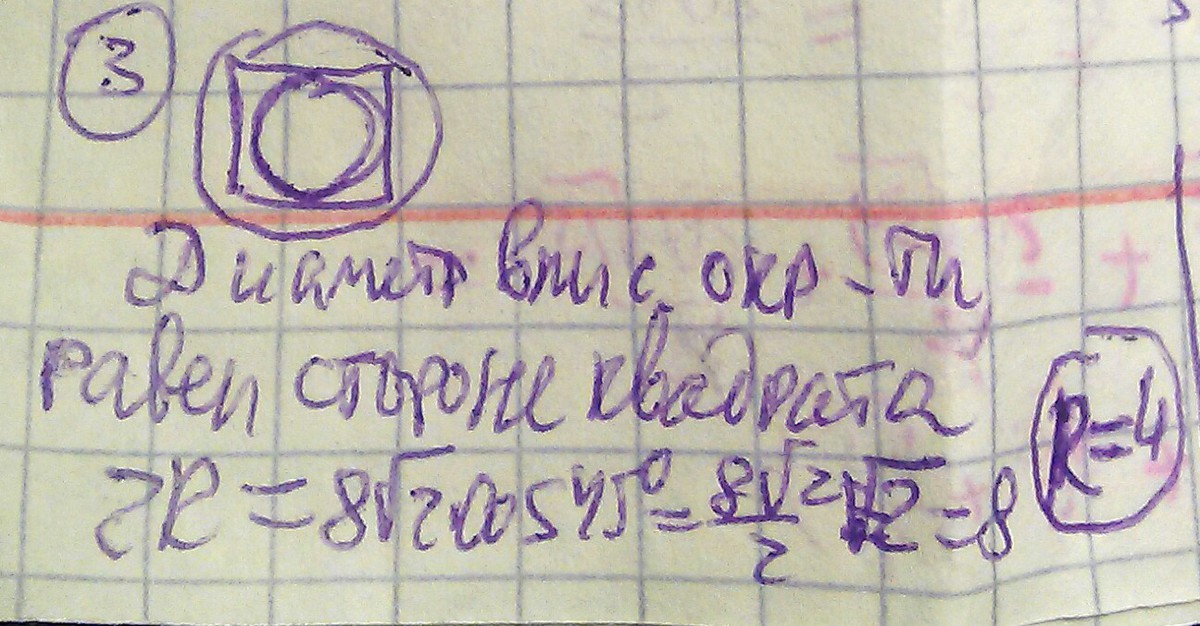 3
Диаметр впис. окр-ти
равен стороне квадрата
2R = 8√2 cos 45° = 8√2 √2 / 2 = 8
R=4